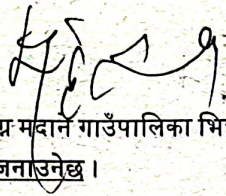 मदाने गाउँपालिका भि
जनाउनेछ ।